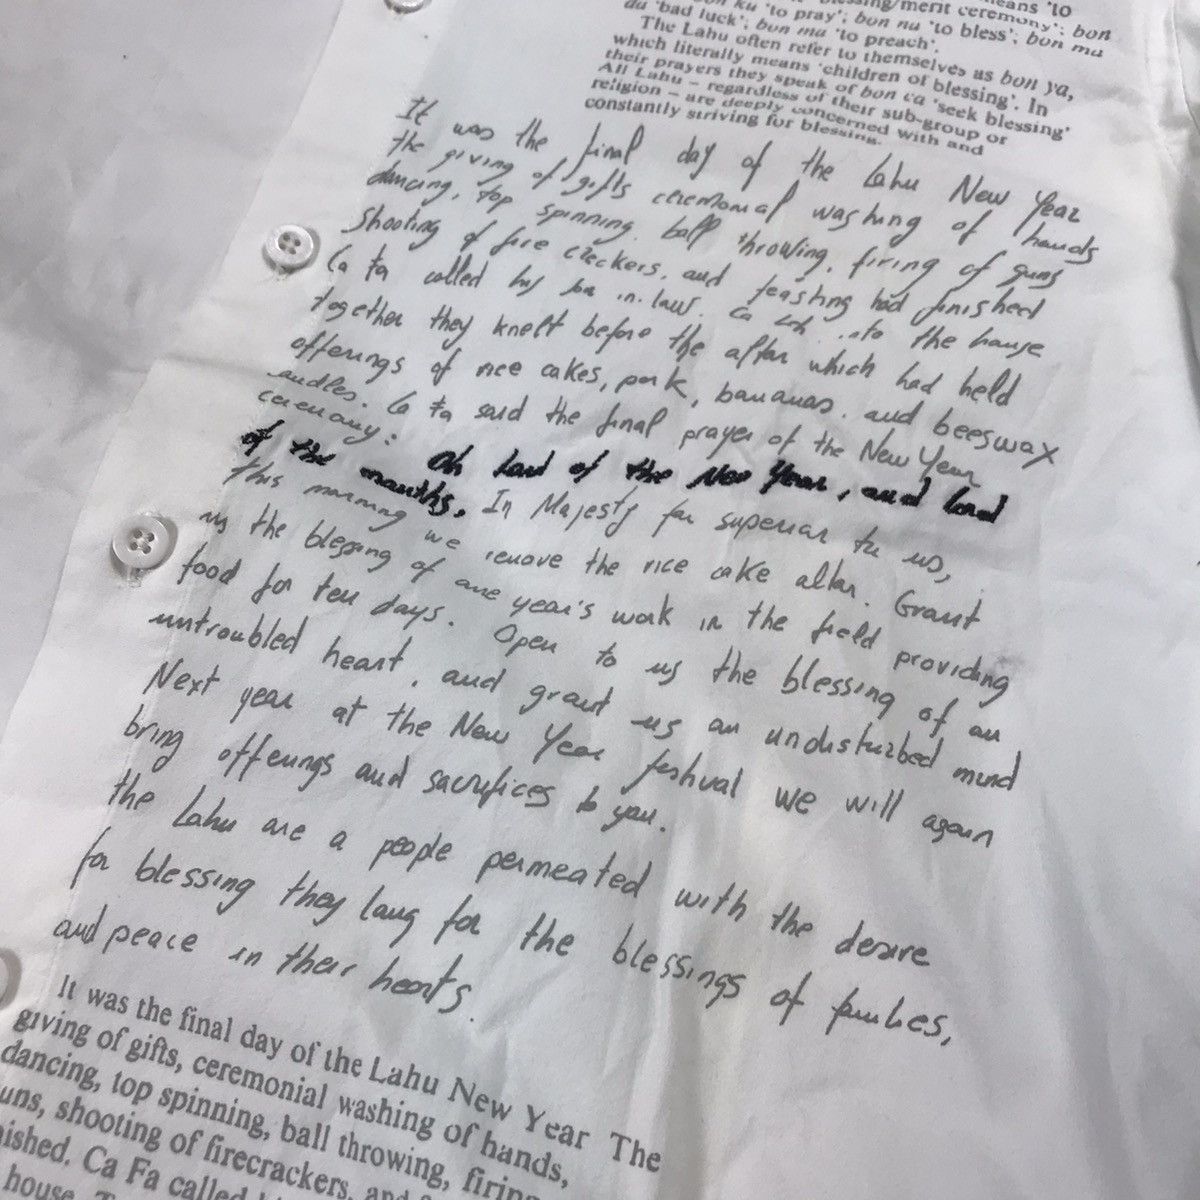 means 'to
blessing/merit ceremony'; bon
bon ku 'to pray'; bon nu 'to bless'; bon ma
du 'bad luck'; bon ma 'to preach'.
The Lahu often refer to themselves as bon ya,
which literally means 'children of blessing'. In
their prayers they speak of bon ca 'seek blessing'
All Lahu – regardless of their sub-group or
religion – are deeply concerned with and
constantly striving for blessing.
It was the final day of the Lahu New Year
the giving of gifts ceremonial washing of hands
dancing, top spinning ball throwing, firing of guns
shooting of fire crackers, and feasting had finished
Ca Fa called his in-law. to the house
together they knelt before the altar which had held
offerings of rice cakes, pork, bananas. and beeswax
andles. Ca Fa said the final prayer of the New Year
ceremony:
Oh Lord of the New Year, and Lord
of the months, In Majesty far superior to us,
This morning we remove the rice cake altar. Grant
us the blessing of one year's work in the field providing
food for ten days. Open to us the blessing of an
untroubled heart, and grant us an undisturbed mind
Next year at the New Year festival we will again
bring offerings and sacrifices to you.
the Lahu are a people permeated with the desire
for blessing they long for the blessings of families,
and peace in their hearts.
It was the final day of the Lahu New Year The
giving of gifts, ceremonial washing of hands,
dancing, top spinning, ball throwing, firing
uns, shooting of firecrackers, and
ished. Ca Fa called
house. T